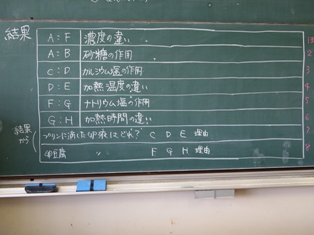 結果
A:F 濃度の違い
A:B 砂糖の作用
C:D カルシウム塩の作用
D:E 加熱温度の違い
F:G ナトリウム塩の作用
G:H 加熱時間の違い
結果から
プリンに適した卵液はどれ? C D E 理由
卵豆腐 〃 F G H 理由